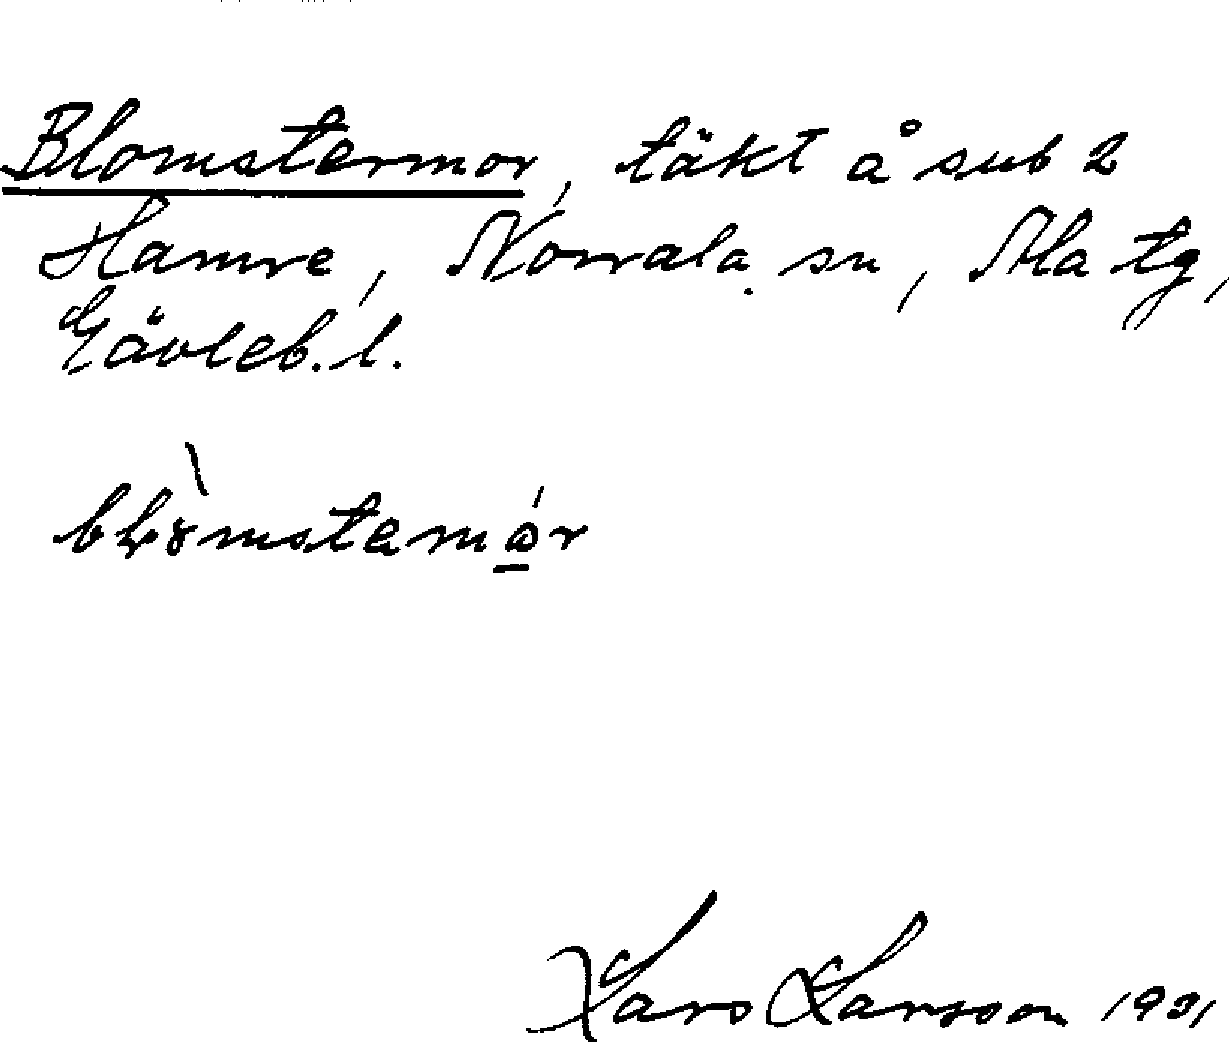 Blomstermor, täkt å sub 2
Hamre, Norrala sn, Ala tg,
Gävleb. l.
Lars Larsson 1931